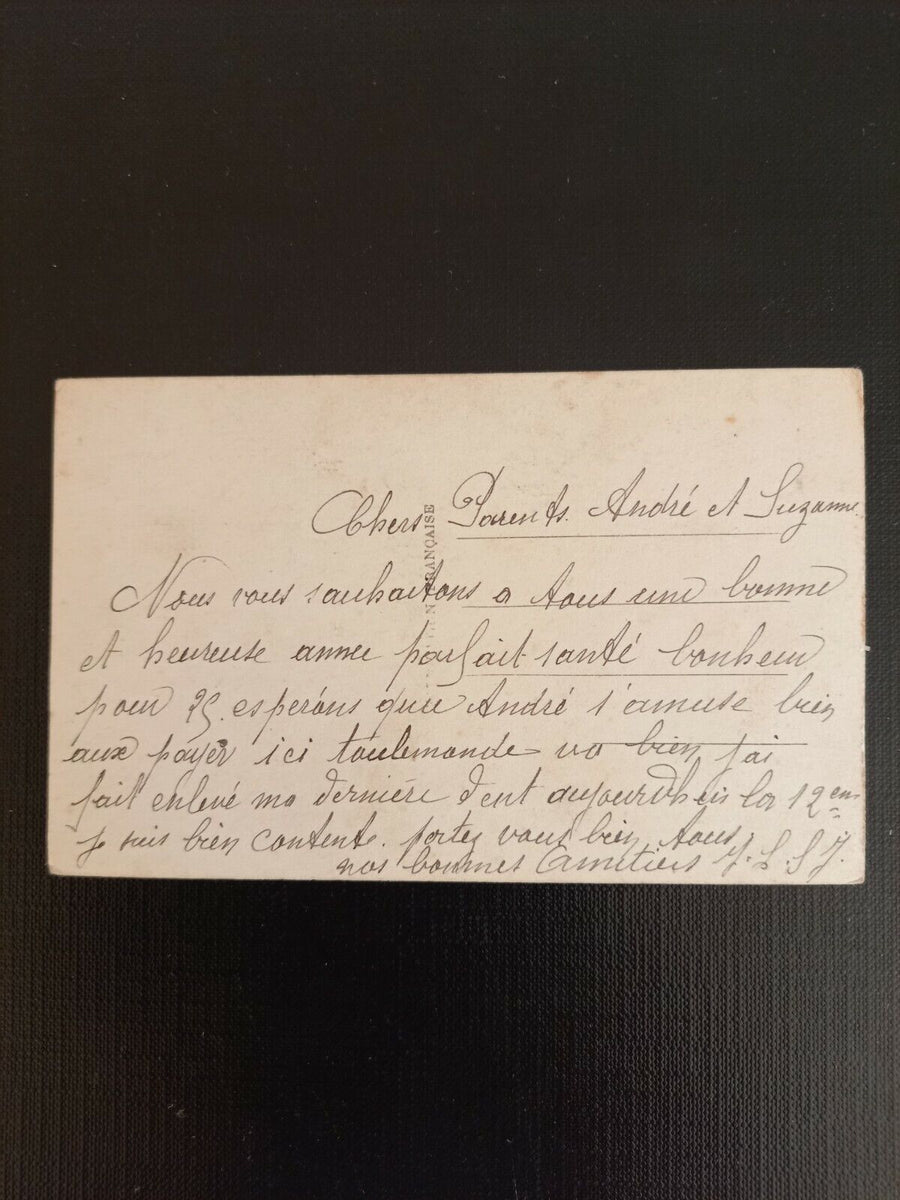 Chers Parents. André et Suzanne
Nous vous souhaitons a tous une bonne
et heureuse annee parfait santé bonheur
pour 25. espérons que André s'amuse bien
aux payer ici toulemonde va bien jai
fait enlevé ma derniere dent aujourdhui la 12 em
Je suis bien contente. portez vous bien tous
nos bonnes Amitiers
FRANÇAISE